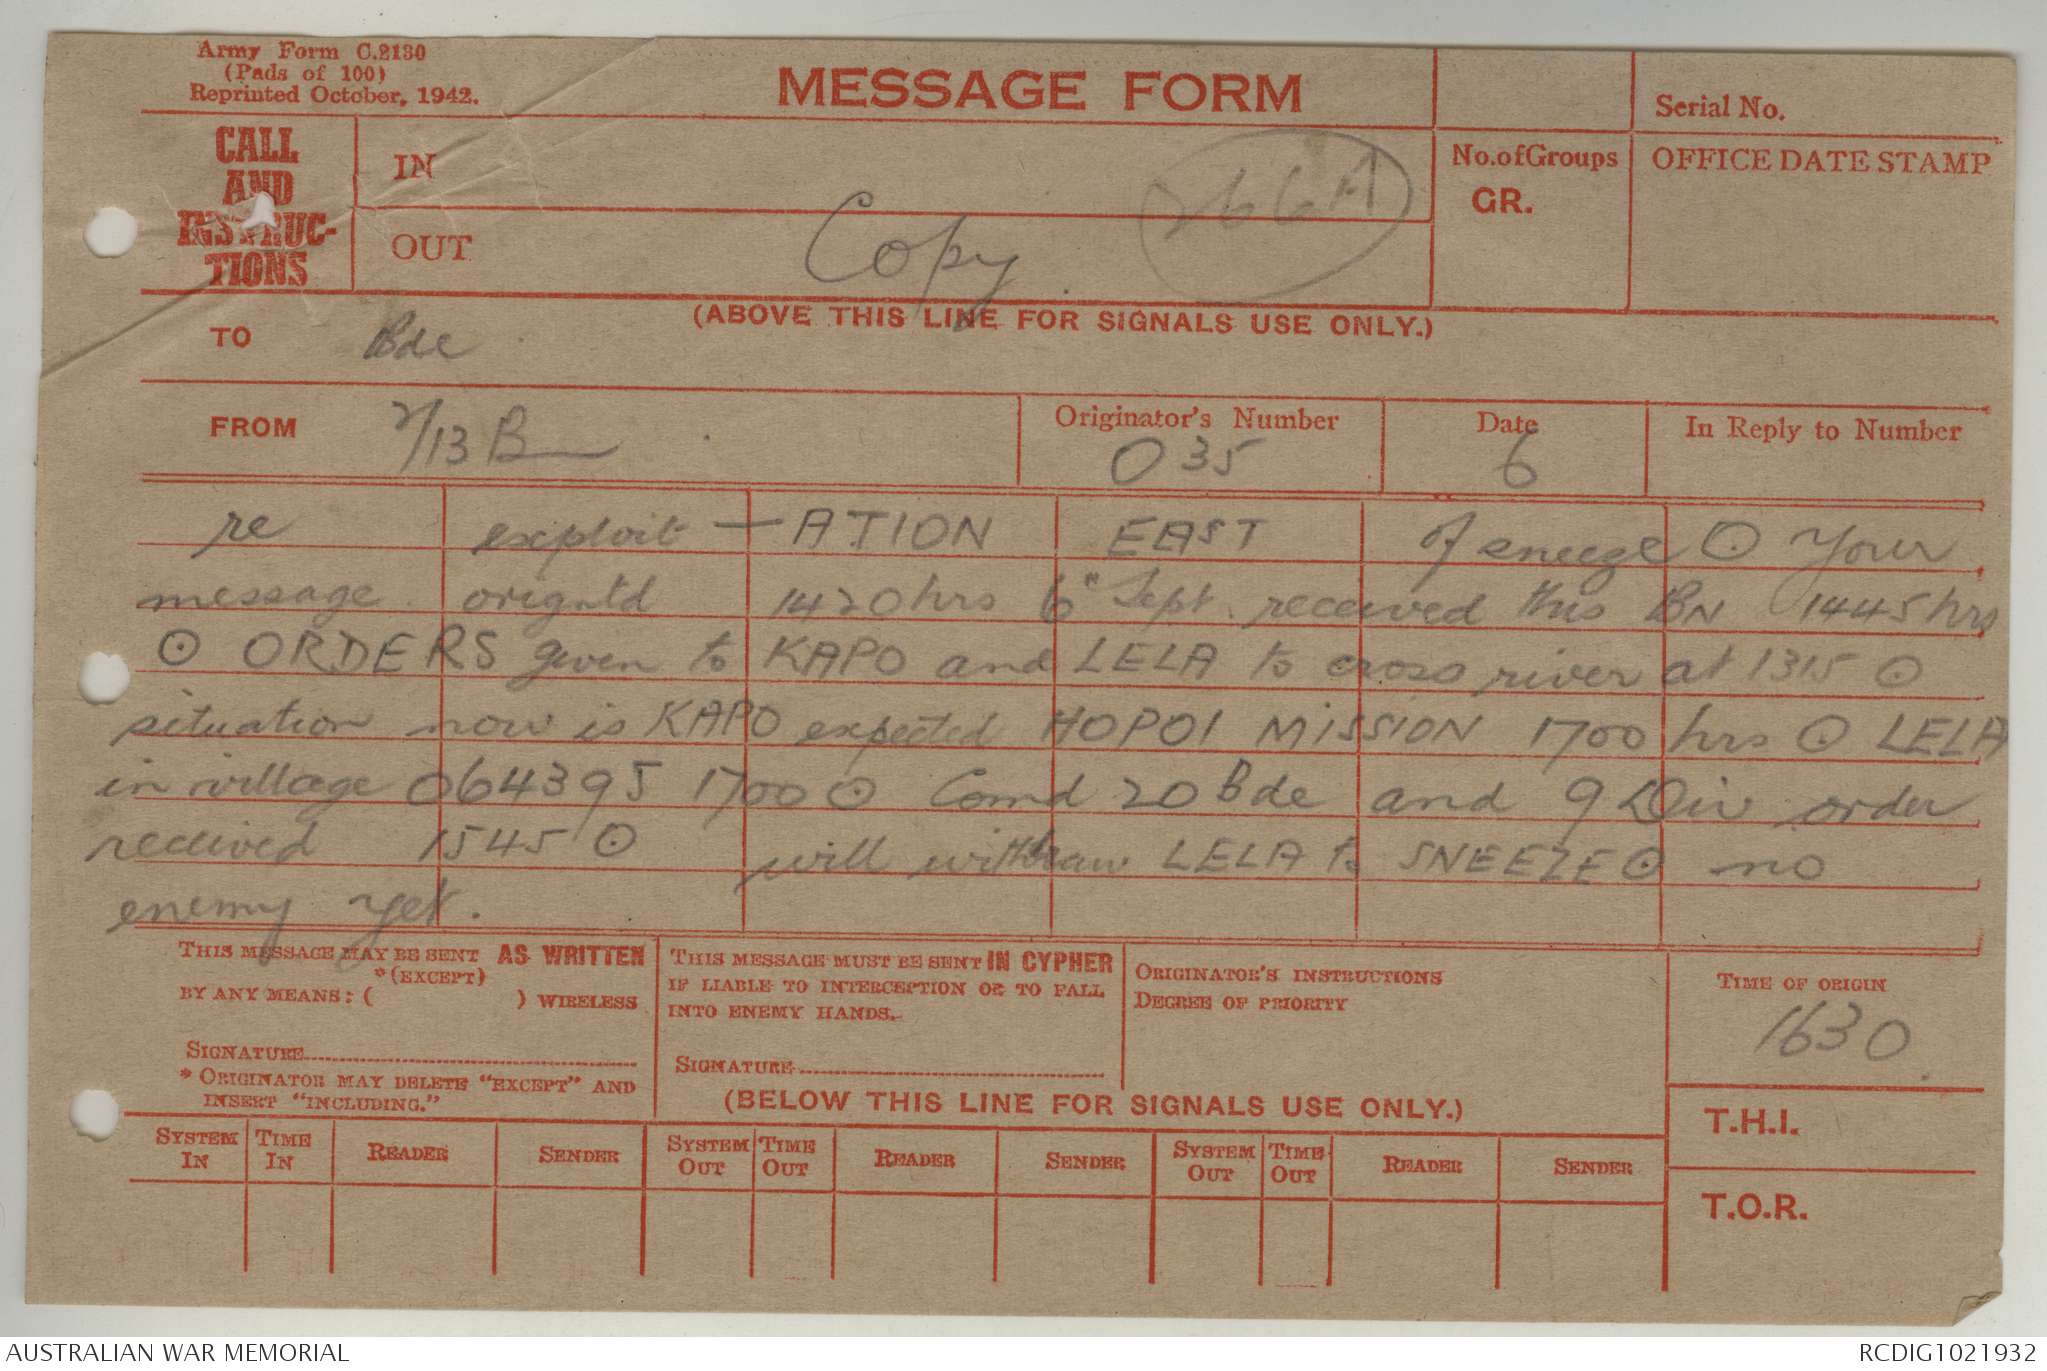 Army Form C.2130
(Pads of 100)
Reprinted October, 1942.
MESSAGE FORM
Serial No.
CALL AND INSTRUC-TIONS
IN
OUT
Copy
266A
No. of Groups
GR.
OFFICE DATE STAMP
(ABOVE THIS LINE FOR SIGNALS USE ONLY.)
TO Bde
FROM 2/13 Bn
Originator's Number
035
Date
6
In Reply to Number
re exploit — ATION EAST of sneeze ⊙ Your
message origntd 1420 hrs 6" Sept. received this BN 1445 hrs
⊙ ORDERS given to KAPO and LELA to cross river at 1315 ⊙
situation now is KAPO expected HOPOI MISSION 1700 hrs ⊙ LELA
in village 064395 1700 ⊙ Comd 20 Bde and 9 Div order
received 1545 ⊙ will withdraw LELA to SNEEZE ⊙ no
enemy yet.
THIS MESSAGE MAY BE SENT AS WRITTEN
*(EXCEPT)
BY ANY MEANS: ( ) WIRELESS
SIGNATURE
* ORIGINATOR MAY DELETE "EXCEPT" AND
INSERT "INCLUDING."
THIS MESSAGE MUST BE SENT IN CYPHER
IF LIABLE TO INTERCEPTION OR TO FALL
INTO ENEMY HANDS.
SIGNATURE
ORIGINATOR'S INSTRUCTIONS
DEGREE OF PRIORITY
TIME OF ORIGIN
1630
(BELOW THIS LINE FOR SIGNALS USE ONLY.)
T.H.I.
T.O.R.
SYSTEM IN TIME IN READER SENDER SYSTEM OUT TIME OUT READER SENDER SYSTEM OUT TIME OUT READER SENDER
AUSTRALIAN WAR MEMORIAL
RCDIG1021932